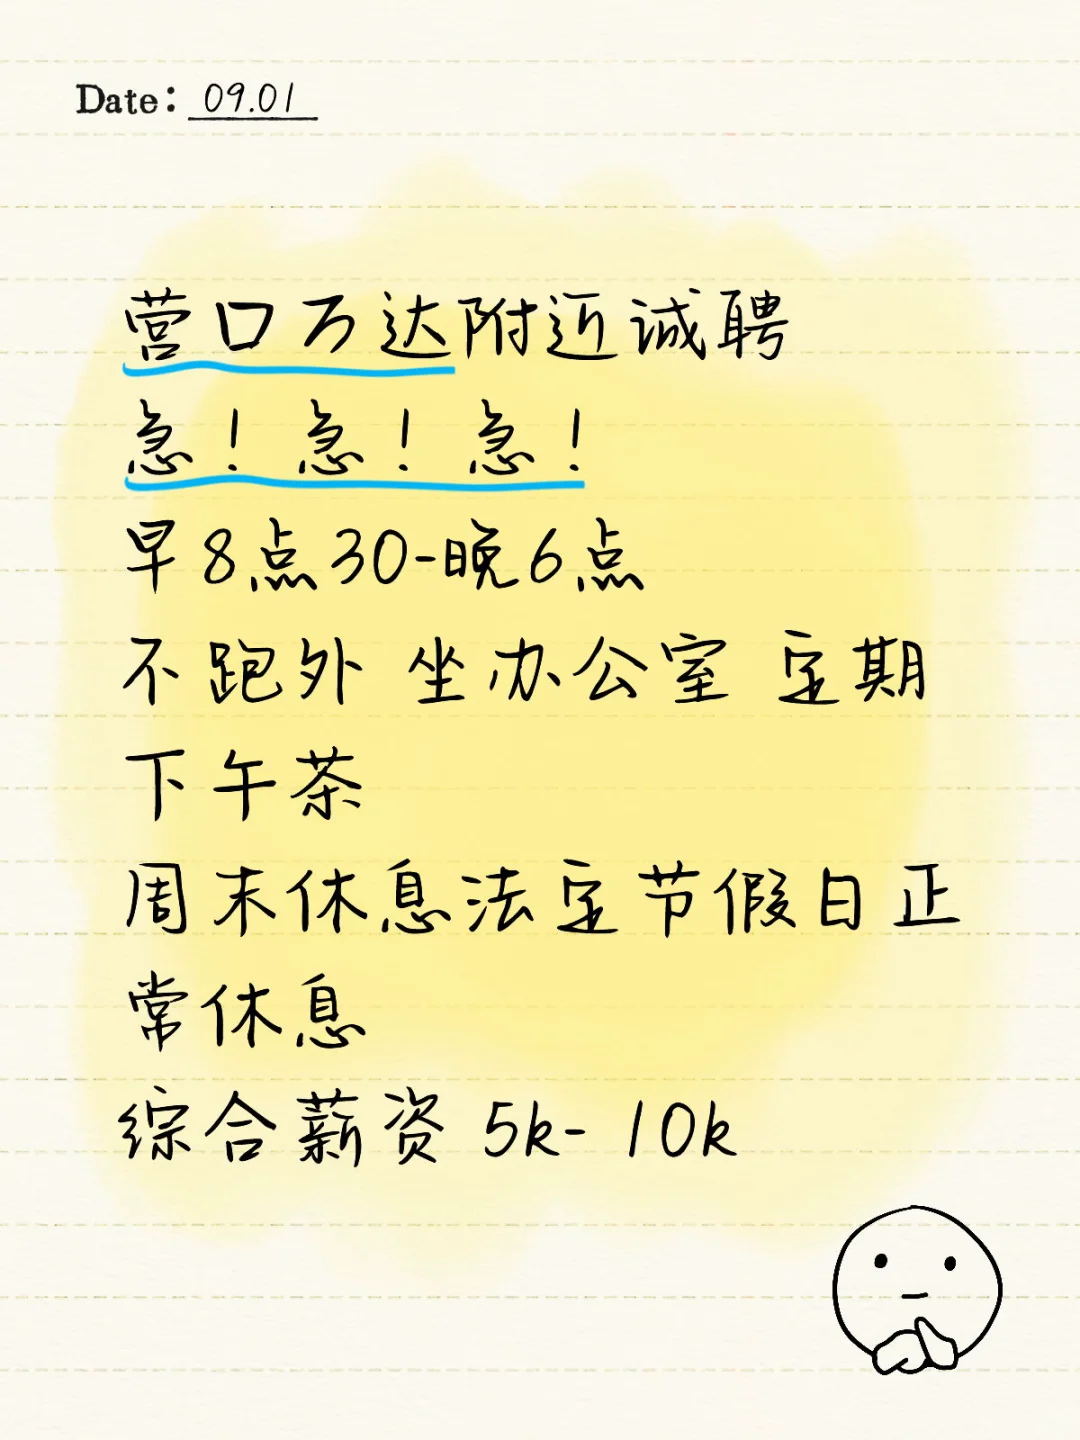 Date: 09.01
营口万达附近诚聘
急！急！急！
早8点30-晚6点
不跑外 坐办公室 定期
下午茶
周末休息法定节假日正
常休息
综合薪资 5k- 10k